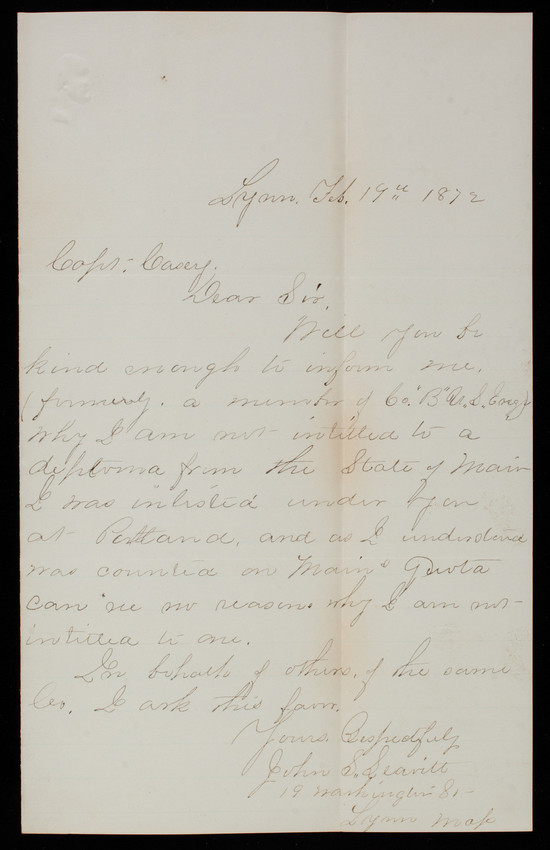 Lynn. Feb. 19th 1872
Capt. Casey.
Dear Sir,
Will you be
kind enough to inform me.
(formerly. a member of Co. "B" U.S. Eng)
why I am not intitled to a
diploma from the State of Main
I was inlisted under you
at Portland, and as I understand
was counted on Mains Quota
can see no reasons why I am not
intitled to one.
In behalf of others, of the same
Co. I ask this favor.
Yours Respectfuly
John S. Leavitt
19 Washington St-
Lynn Mass